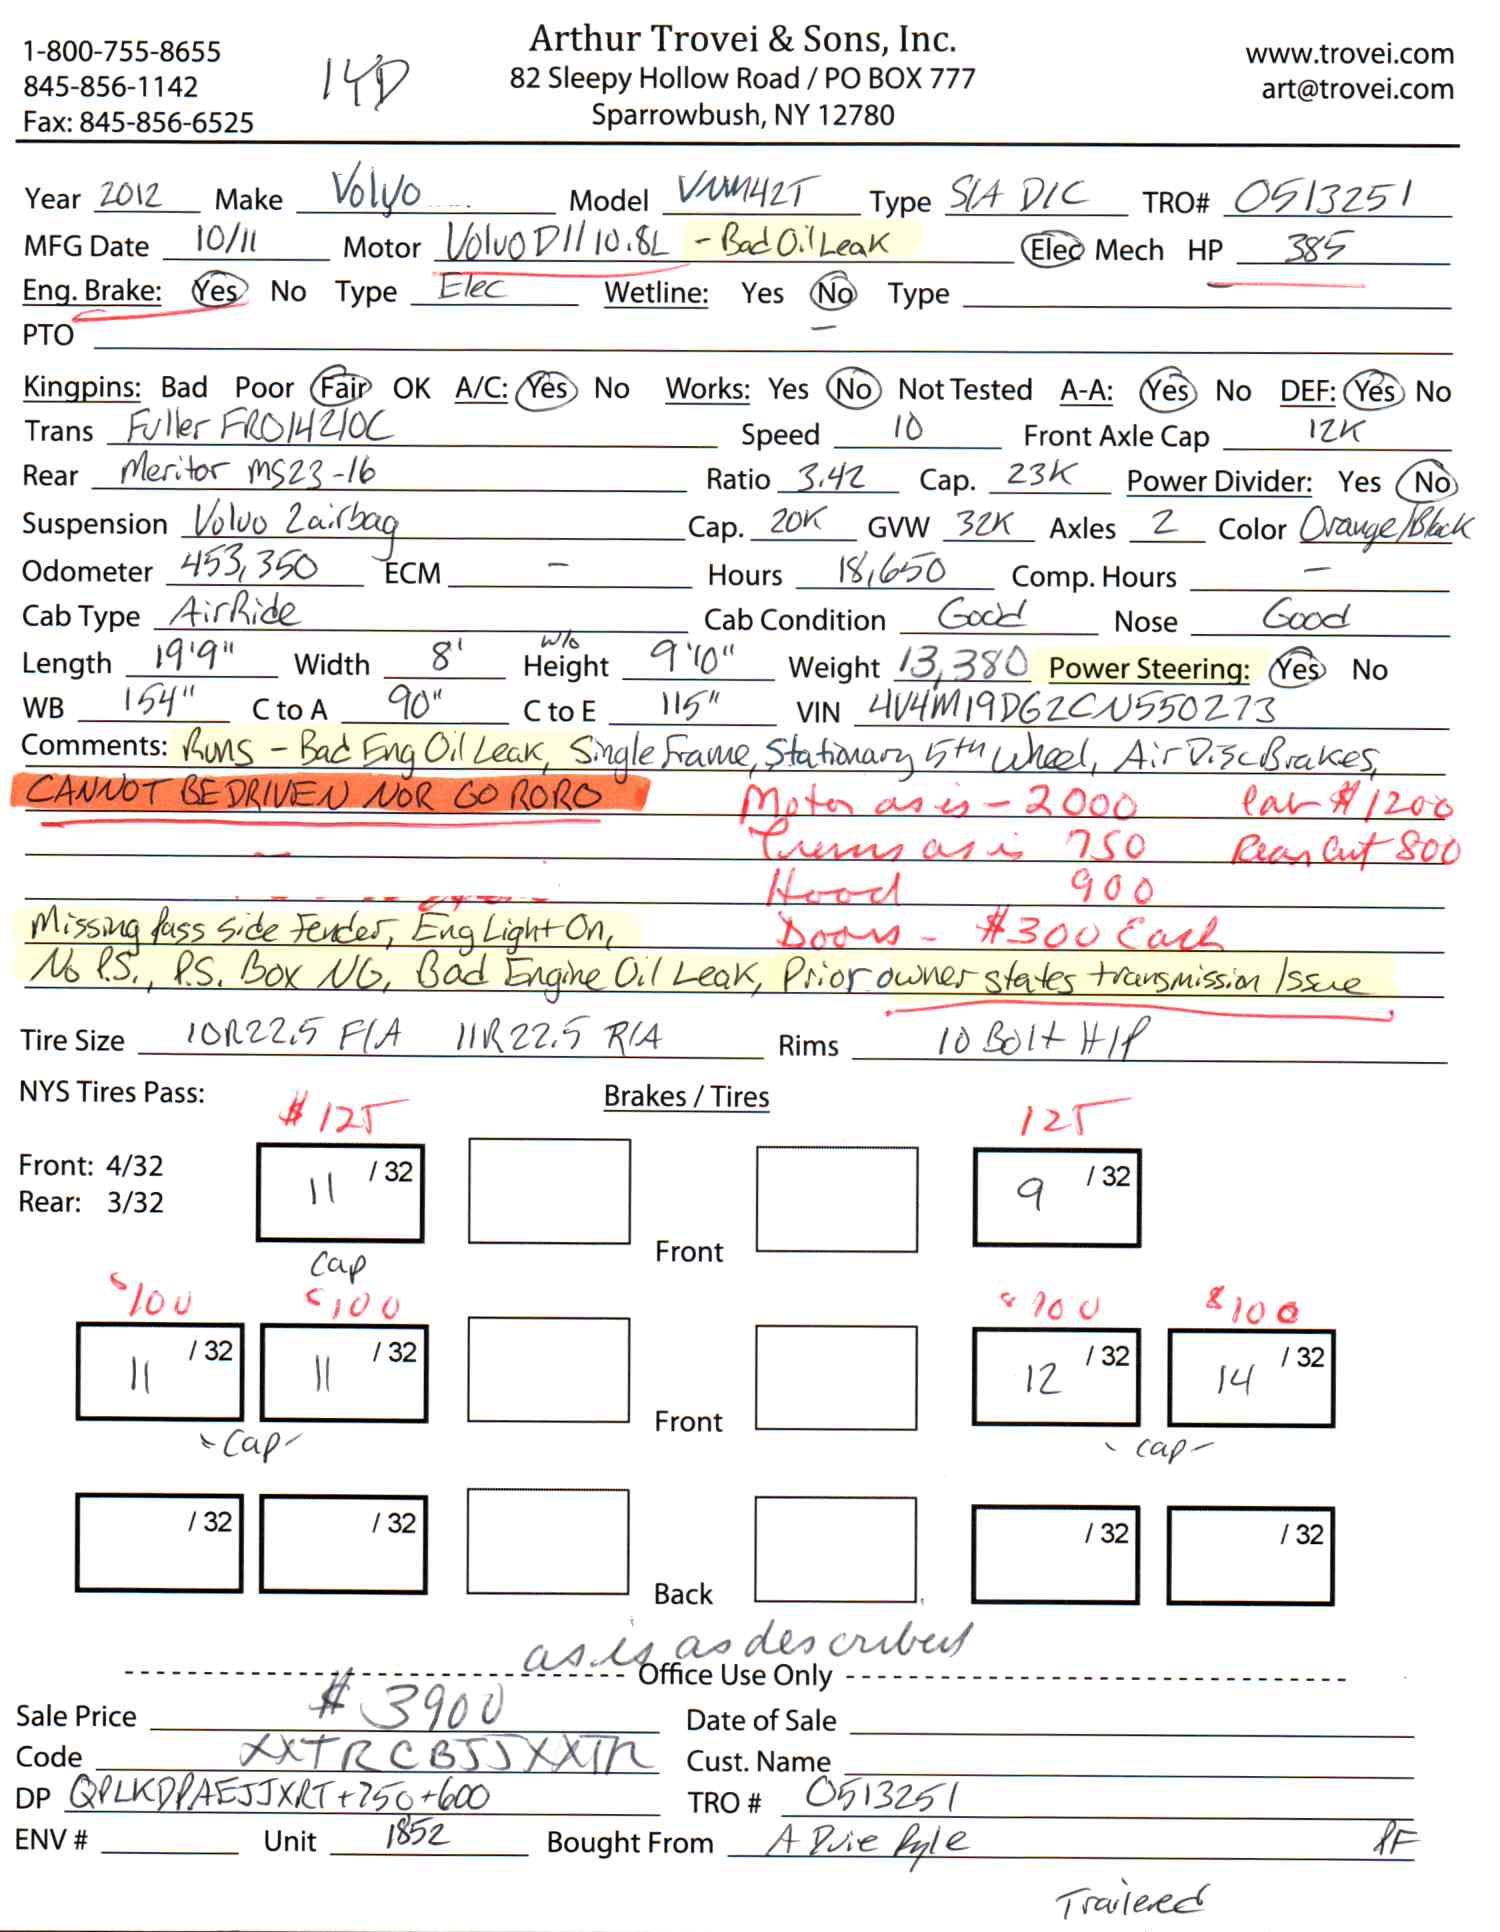 1-800-755-8655
845-856-1142
Fax: 845-856-6525
14D
Arthur Trovei & Sons, Inc.
82 Sleepy Hollow Road / PO BOX 777
Sparrowbush, NY 12780
www.trovei.com
art@trovei.com
Year 2012 Make Volvo Model VNM42T Type S/A D/C TRO# 0513251
MFG Date 10/11 Motor Volvo D11 10.8L - Bad Oil Leak Elec Mech HP 385
Eng. Brake: Yes No Type Elec Wetline: Yes No Type
PTO -
Kingpins: Bad Poor Fair OK A/C: Yes No Works: Yes No Not Tested A-A: Yes No DEF: Yes No
Trans Fuller FRO14210C Speed 10 Front Axle Cap 12K
Rear Meritor MS23-16 Ratio 3.42 Cap. 23K Power Divider: Yes No
Suspension Volvo 2airbag Cap. 20K GVW 32K Axles 2 Color Orange/Black
Odometer 453,350 ECM - Hours 18,650 Comp. Hours -
Cab Type AirRide Cab Condition Good Nose Good
Length 19'9" Width 8' w/o Height 9'10" Weight 13,380 Power Steering: Yes No
WB 154" C to A 90" C to E 115" VIN 4V4M19DG2CN550273
Comments: Runs - Bad Eng Oil Leak, Single Frame, Stationary 5th Wheel, Air Disc Brakes,
CANNOT BE DRIVEN NOR GO RORO Motor as is - 2000 Cab $1200
Trans as is 750 Rear Cut 800
Hood 900
Missing Pass Side Fender, Eng Light On, Doors - $300 Each
No P.S., P.S. Box NG, Bad Engine Oil Leak, Prior owner states transmission Issue
Tire Size 10R22.5 F/A 11R22.5 R/A Rims 10 Bolt H/P
NYS Tires Pass: Brakes / Tires
$125 125
Front: 4/32 11 /32 9 /32
Rear: 3/32
Front
Cap
$100 $100 $100 $100
11 /32 11 /32 12 /32 14 /32
Front
-Cap- -Cap-
/32 /32 /32 /32
Back
as is as described
Office Use Only
Sale Price $3900 Date of Sale
Code XXTRCBJJXXTR Cust. Name
DP QPLKDPAEJJXRT+750+600 TRO # 0513251
ENV # Unit 1852 Bought From A Duie Pyle PF
Trailered